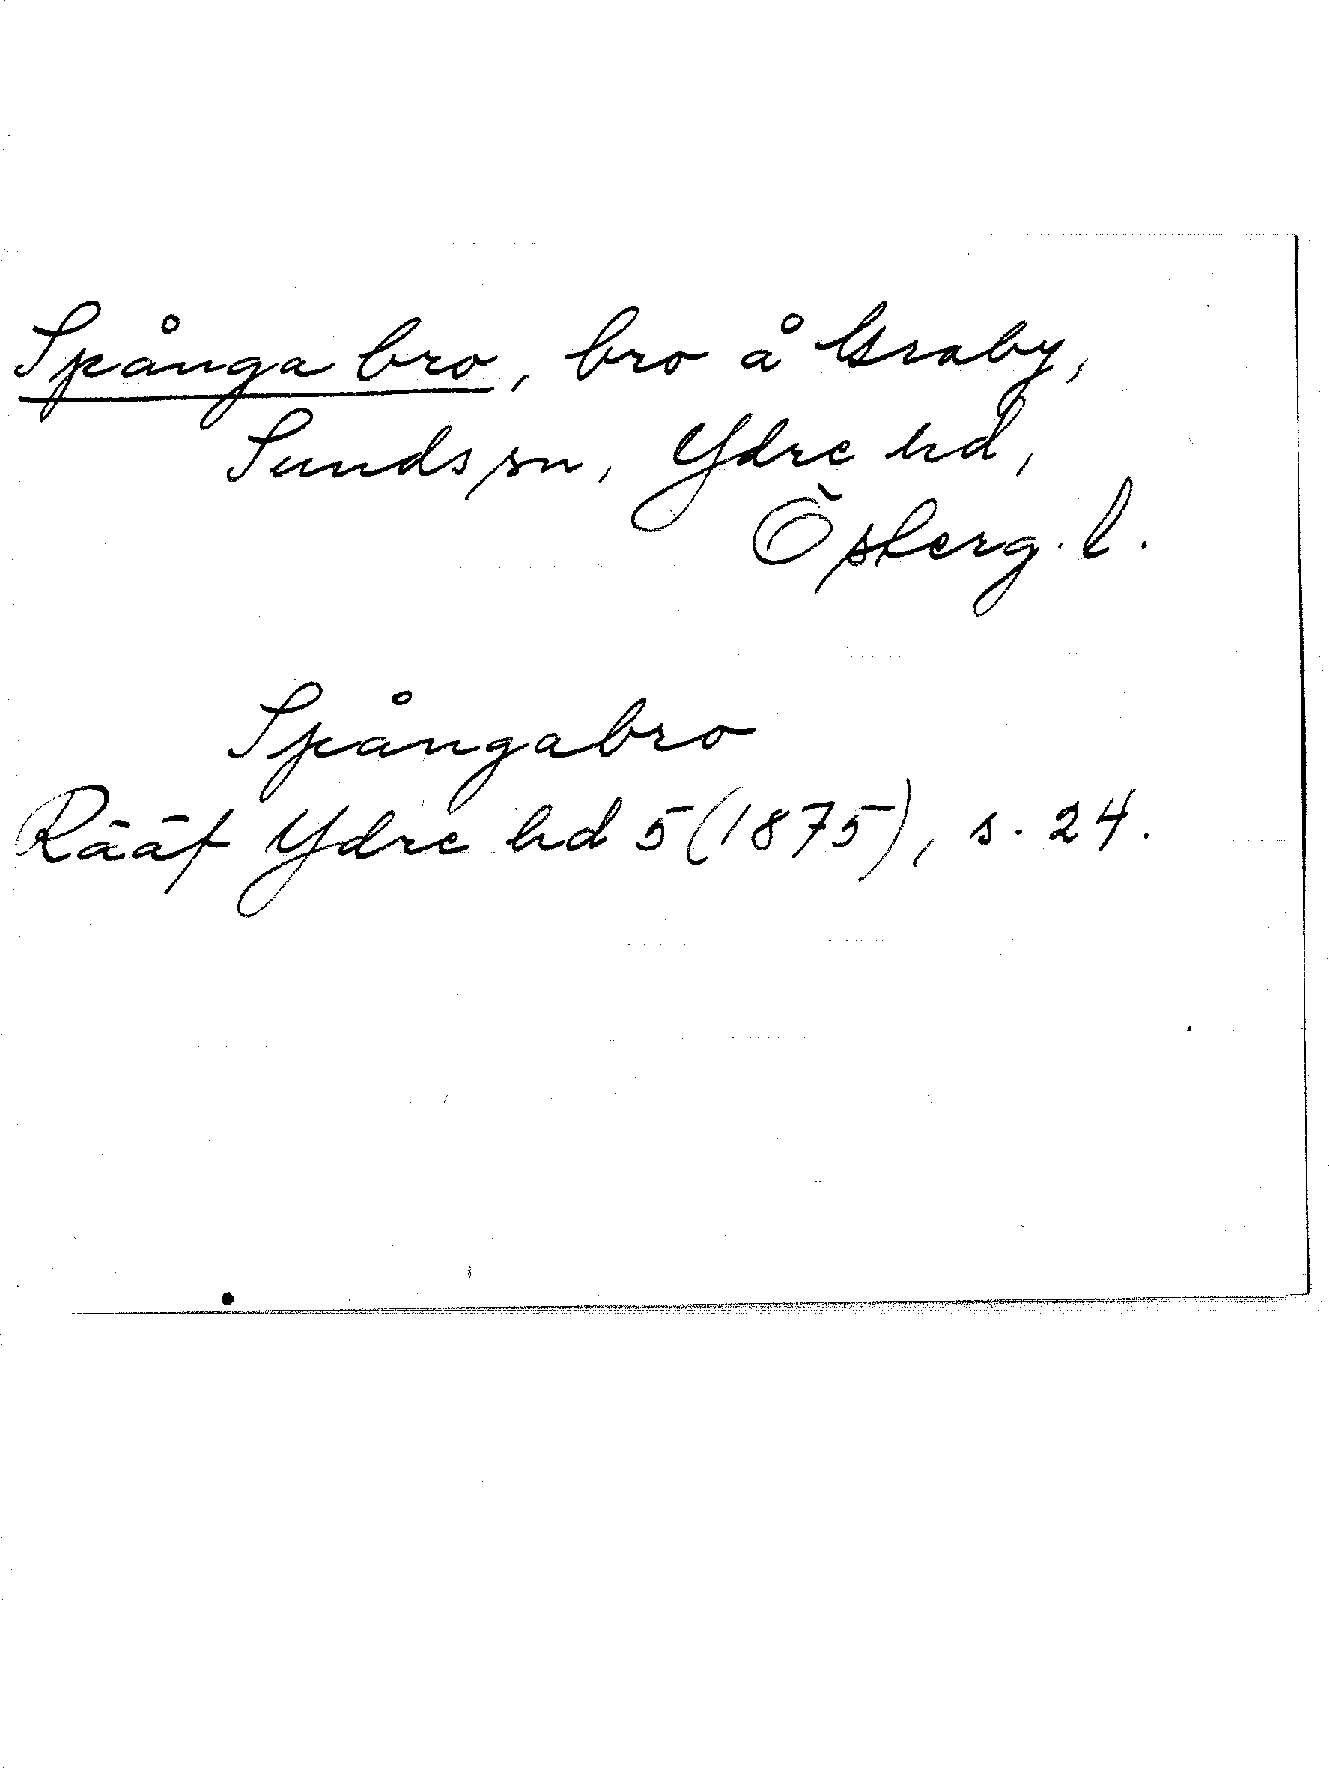 Spånga bro, bro å Graby,
Sunds sn, Ydre hd,
Österg. l.
Spångabro
Rääf Ydre hd 5 (1875), s. 24.